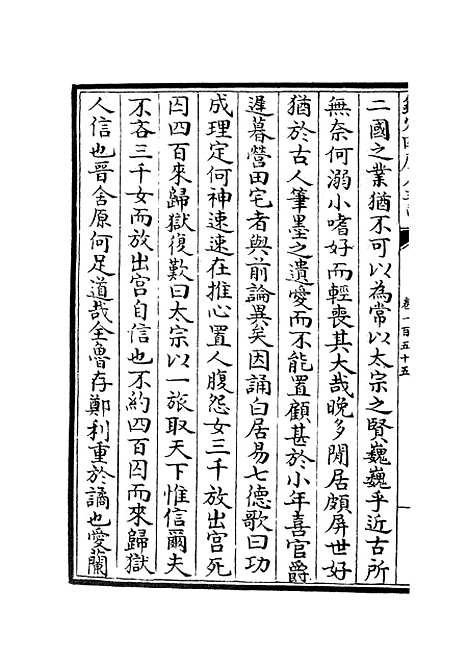 卷一百五十五
二國之業猶不可以為常以太宗之賢巍巍乎近古所
無奈何溺小嗜好而輕喪其大哉晚多閒居頗屏世好
猶於古人筆墨之遺愛而不能置顧甚於小年喜官爵
遲暮營田宅者與前論異矣因誦白居易七德歌曰功
成理定何神速速在推心置人腹怨女三千放出宮死
囚四百來歸獄復歎曰太宗以一旅取天下惟信爾夫
不吝三千女而放出宮自信也不約四百囚而來歸獄
人信也晉舍原何足道哉全魯存鄭利重於譎也愛蘭